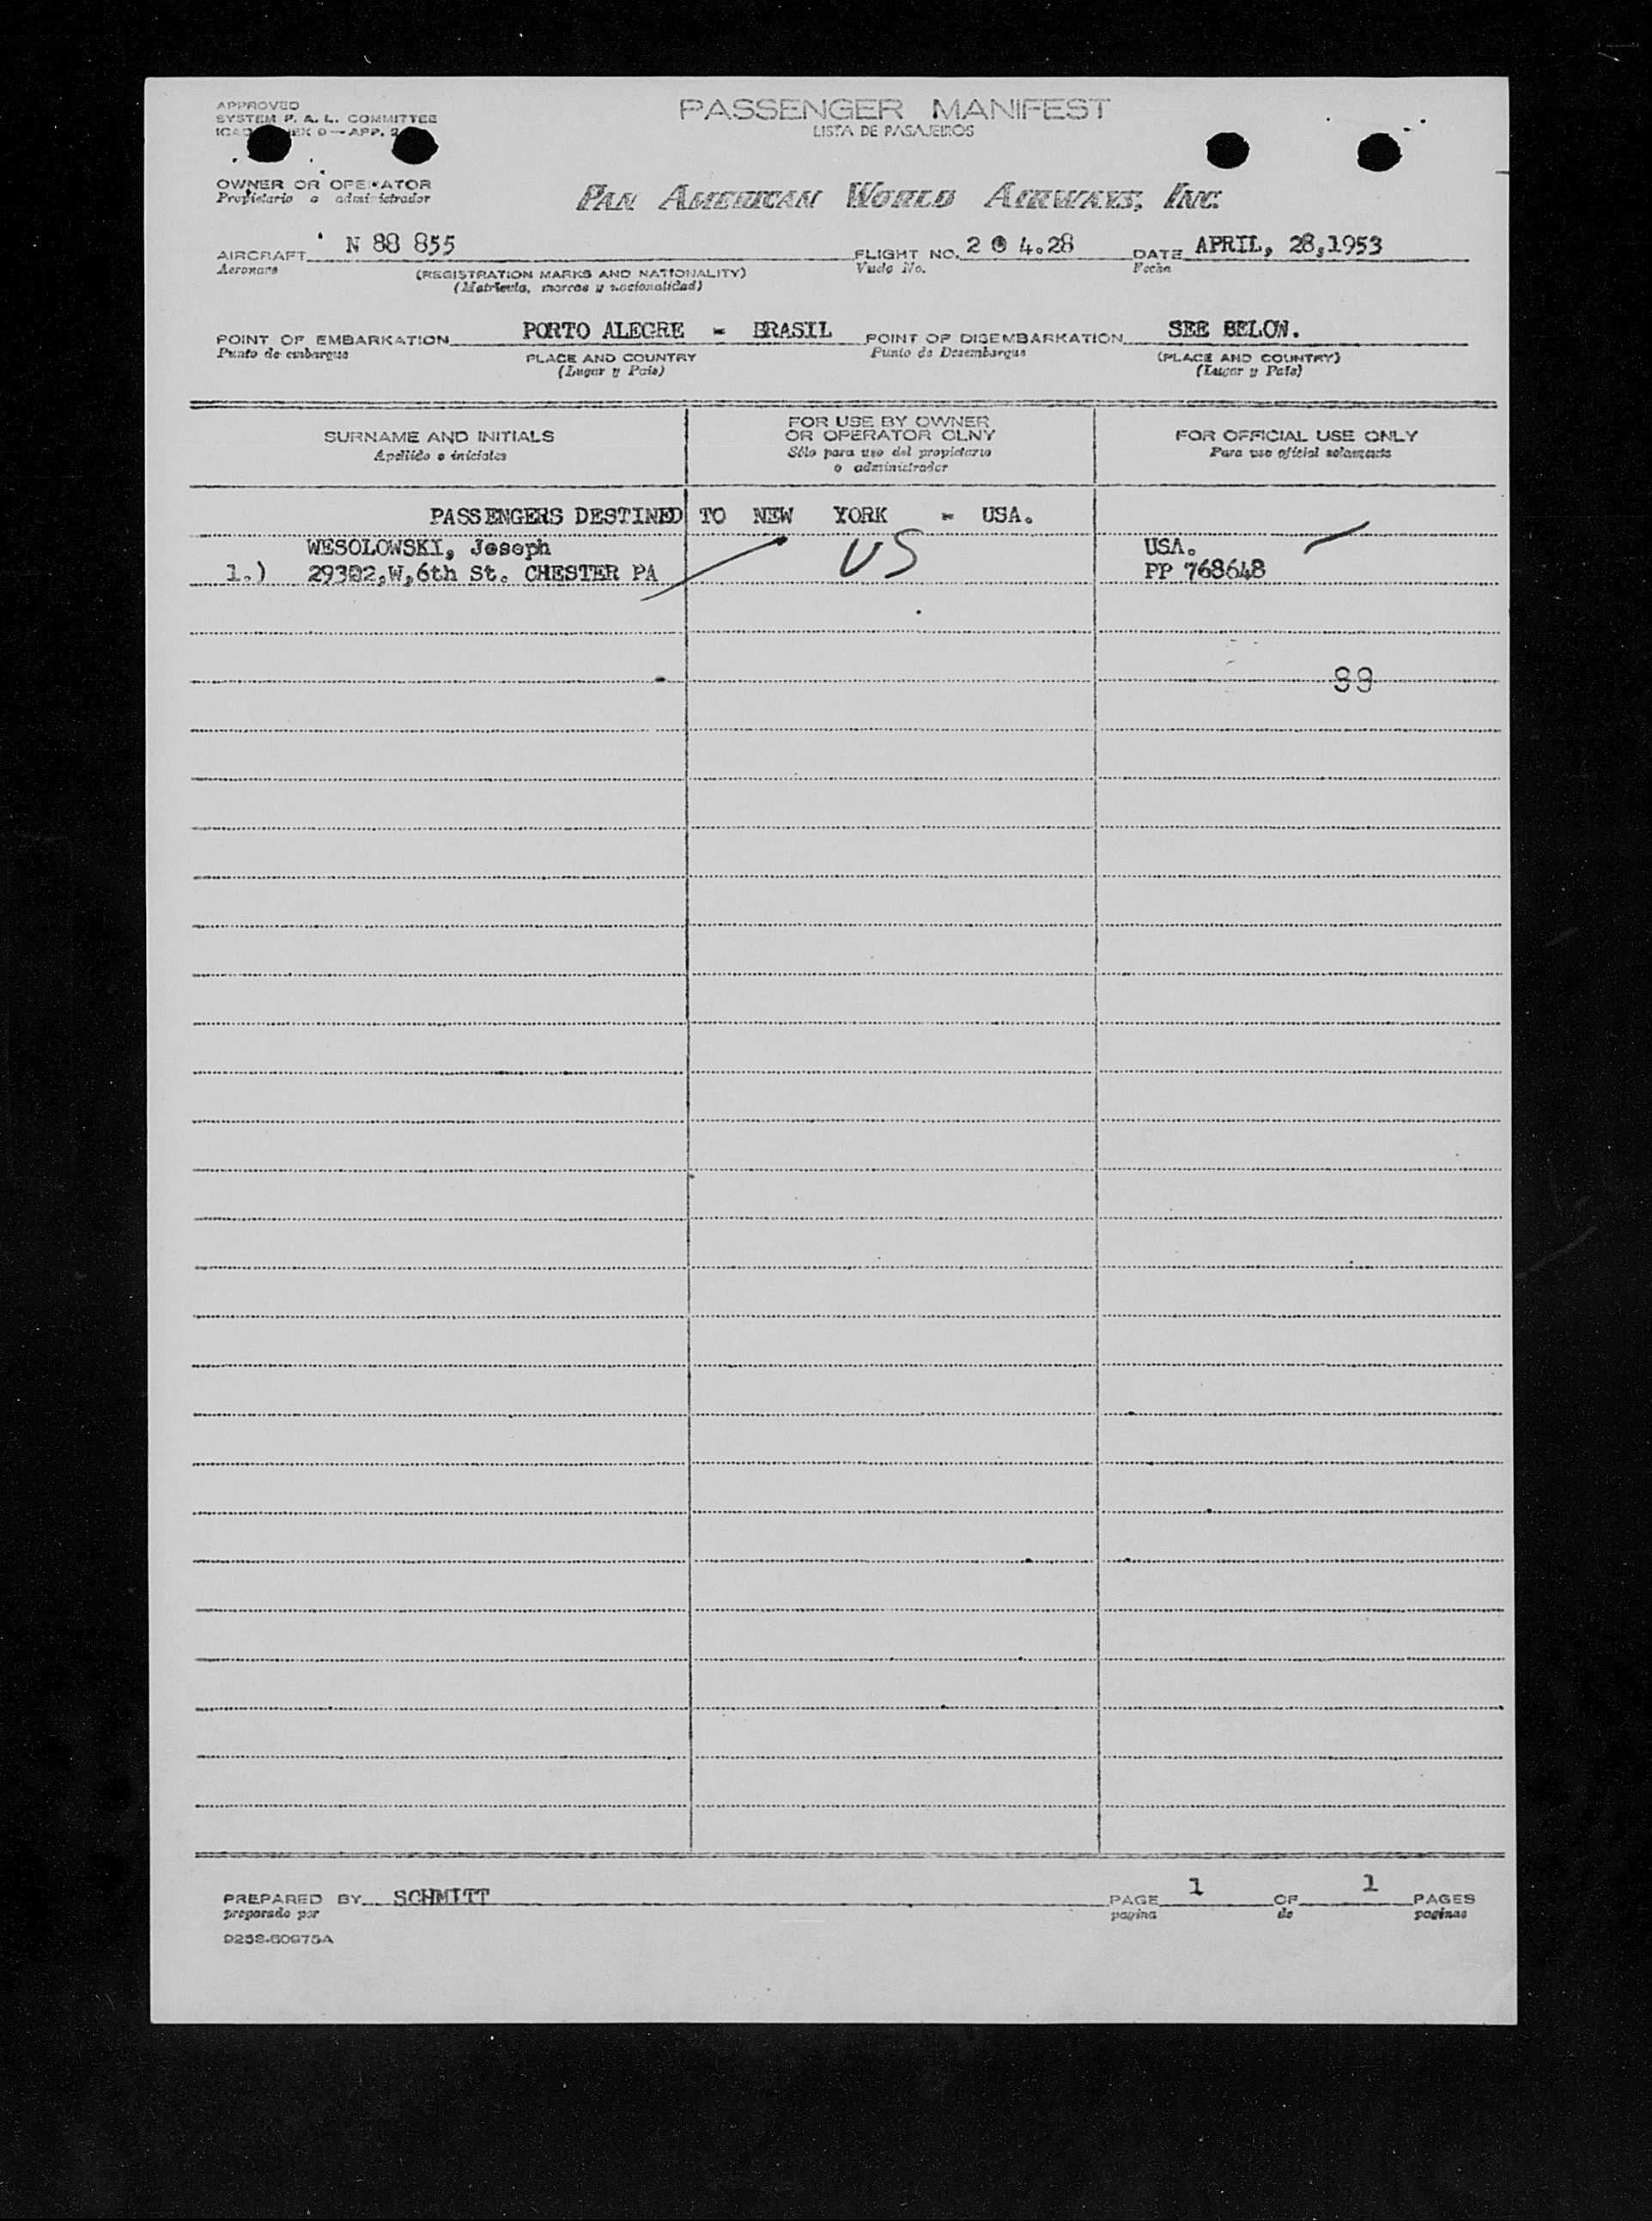 APPROVED
SYSTEM P. A. L. COMMITTEE
PASSENGER MANIFEST
LISTA DE PASAJEIROS
OWNER OR OPERATOR
Propietario o administrador
PAN AMERICAN WORLD AIRWAYS, INC.
AIRCRAFT N 88 855 FLIGHT NO. 2 @ 4.28 DATE APRIL, 28,1953
Aeronave (REGISTRATION MARKS AND NATIONALITY) Vuelo No. Fecha
(Matrícula, marcas y nacionalidad)
POINT OF EMBARKATION PORTO ALEGRE - BRASIL POINT OF DISEMBARKATION SEE BELOW.
Punto de embarque PLACE AND COUNTRY Punto de Desembarque (PLACE AND COUNTRY)
(Lugar y País) (Lugar y País)
SURNAME AND INITIALS
Apellido e iniciales
FOR USE BY OWNER
OR OPERATOR OLNY
Sólo para uso del propietario
o administrador
FOR OFFICIAL USE ONLY
Para uso oficial solamente
PASSENGERS DESTINED TO NEW YORK - USA.
WESOLOWSKI, Joseph US USA.
1.) W,6th St. CHESTER PA PP 768648
PREPARED BY SCHMITT PAGE 1 OF 1 PAGES
preparado por pagina de paginas